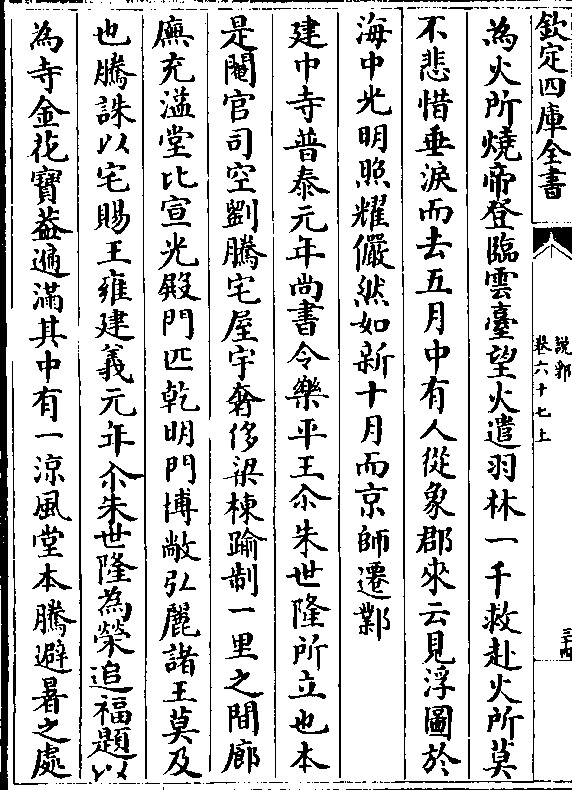 欽定四庫全書
說郛
卷六十七上
三十四
為火所燒帝登臨雲臺望火遣羽林一千救赴火所莫
不悲惜垂淚而去五月中有人從象郡來云見浮圖於
海中光明照耀儼然如新十月而京師遷鄴
建中寺普泰元年尚書令樂平王尒朱世隆所立也本
是閹官司空劉騰宅屋宇奢侈梁棟踰制一里之間廊
廡充溢堂比宣光殿門匹乾明門博敞弘麗諸王莫及
也騰誅以宅賜王雍建義元年尒朱世隆為榮追福題以
為寺金花寶葢遍滿其中有一涼風堂本騰避暑之處